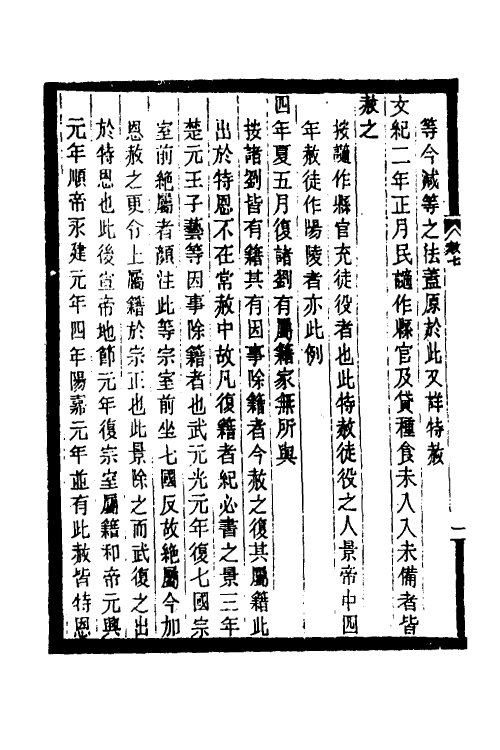 等今減等之法蓋原於此又詳特赦
文紀二年正月民謫作縣官及貸種食未入入未備者皆
赦之
按謫作縣官充徒役者也此特赦徒役之人景帝中四
年赦徒作陽陵者亦此例
四年夏五月復諸劉有屬籍家無所與
按諸劉皆有籍其有因事除籍者今赦之復其屬籍此
出於特恩不在常赦中故凡復籍者紀必書之景三年
楚元王子蓺等因事除籍者也武元光元年復七國宗
室前絶屬者顏注此等宗室前坐七國反故絶屬今加
恩赦之更令上屬籍於宗正也此景除之而武復之出
於特恩也此後宣帝地節元年復宗室屬籍和帝元興
元年順帝永建元年四年陽嘉元年並有此赦皆特恩
赦七
一